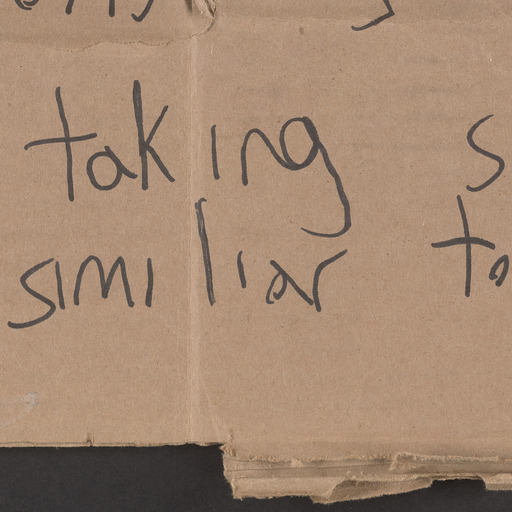 taking s
similiar to